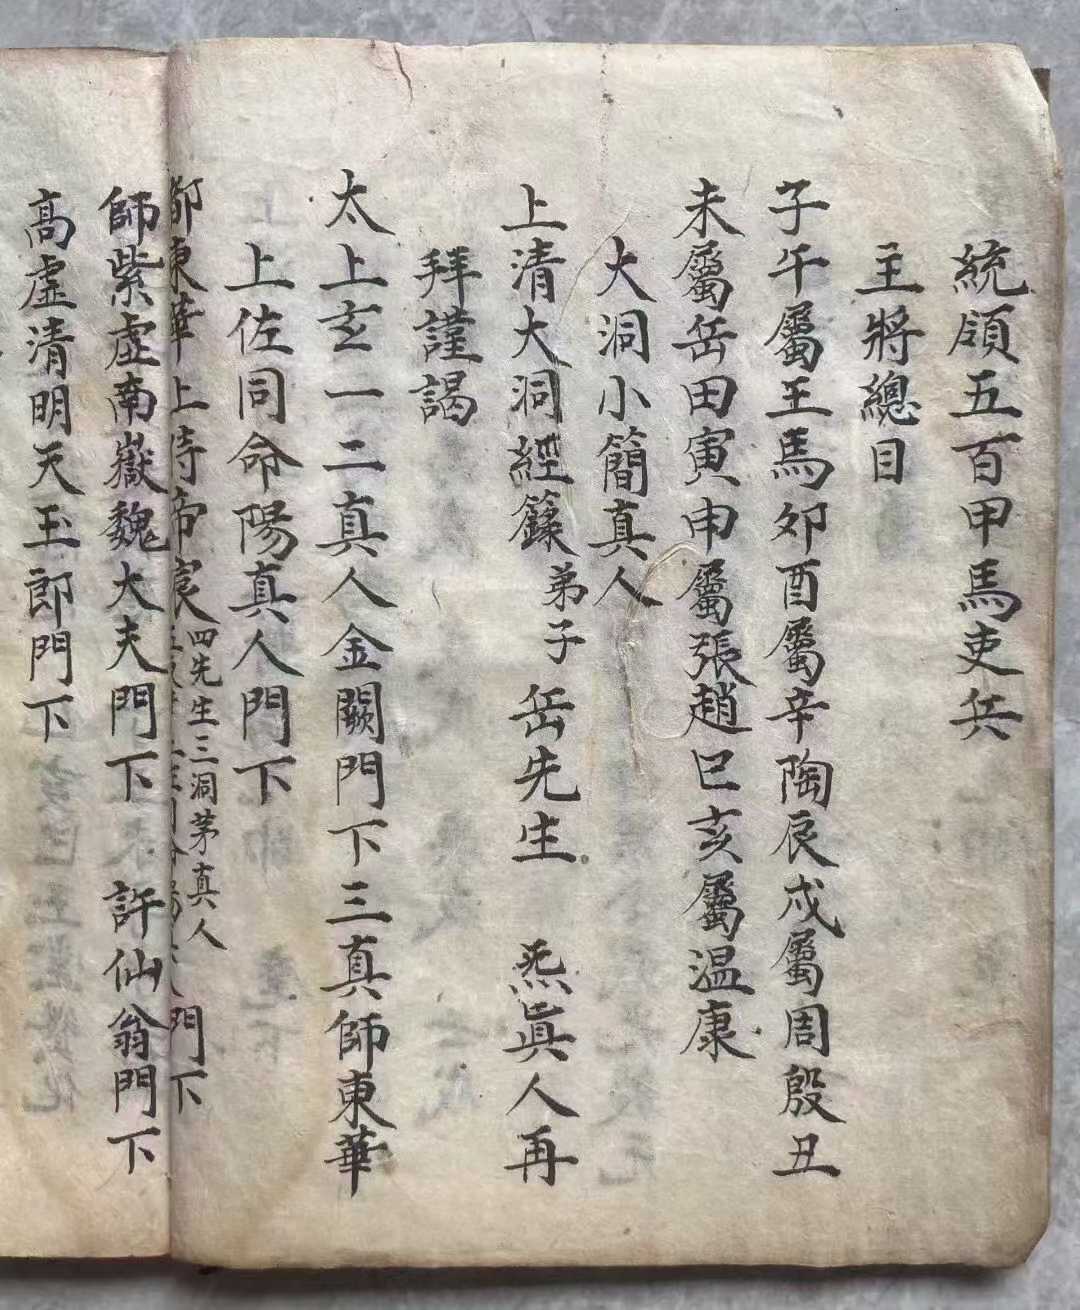 統領五百甲馬吏兵
主將總目
子午屬王馬卯酉屬辛陶辰戍屬周殷丑
未屬岳田寅申屬張趙巳亥屬温康
大洞小簡真人
上清大洞經籙弟子岳先生 炁眞人再
拜謹謁
太上玄一二真人金闕門下三真師東華
上佐同命陽真人門下
東華上帝四先生三洞茅真人門下
師紫虛南嶽魏大夫門下 許仙翁門下
高虛清明天玉郎門下